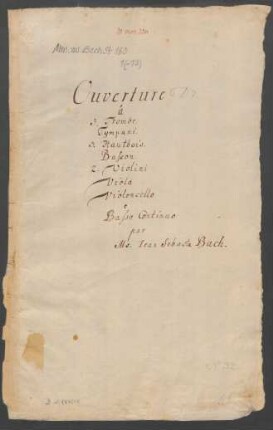 Mus. ms. Bach St 153
Ouverture
à
3. Trombe.
Tympani.
3. Hautbois.
Basson
2. Violini
Viola
Violoncello
e
Basso Continuo
par
Mr. Jean Sebast: Bach.